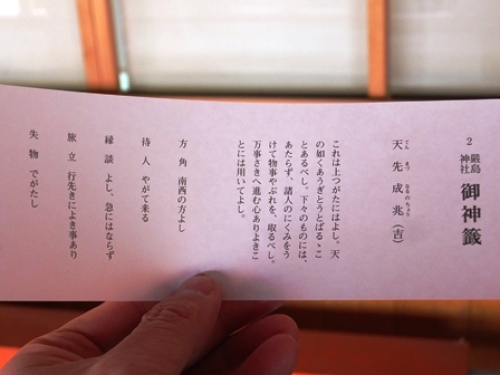 2
嚴島
神社
御神籤
てん まづ なるのちょう
天先成兆(吉)
これは上つがたにはよし。天
の如くあうぎとうとばるゝこ
とあるべし。下々のものには、
あたらず、諸人のにくみをう
けて物事やぶれを、取るべし。
万事さきへ進む心ありよきこ
とには用いてよし。
方角 南西の方よし
待人 やがて来る
縁談 よし、急にはならず
旅立 行先きによき事あり
失物 でがたし